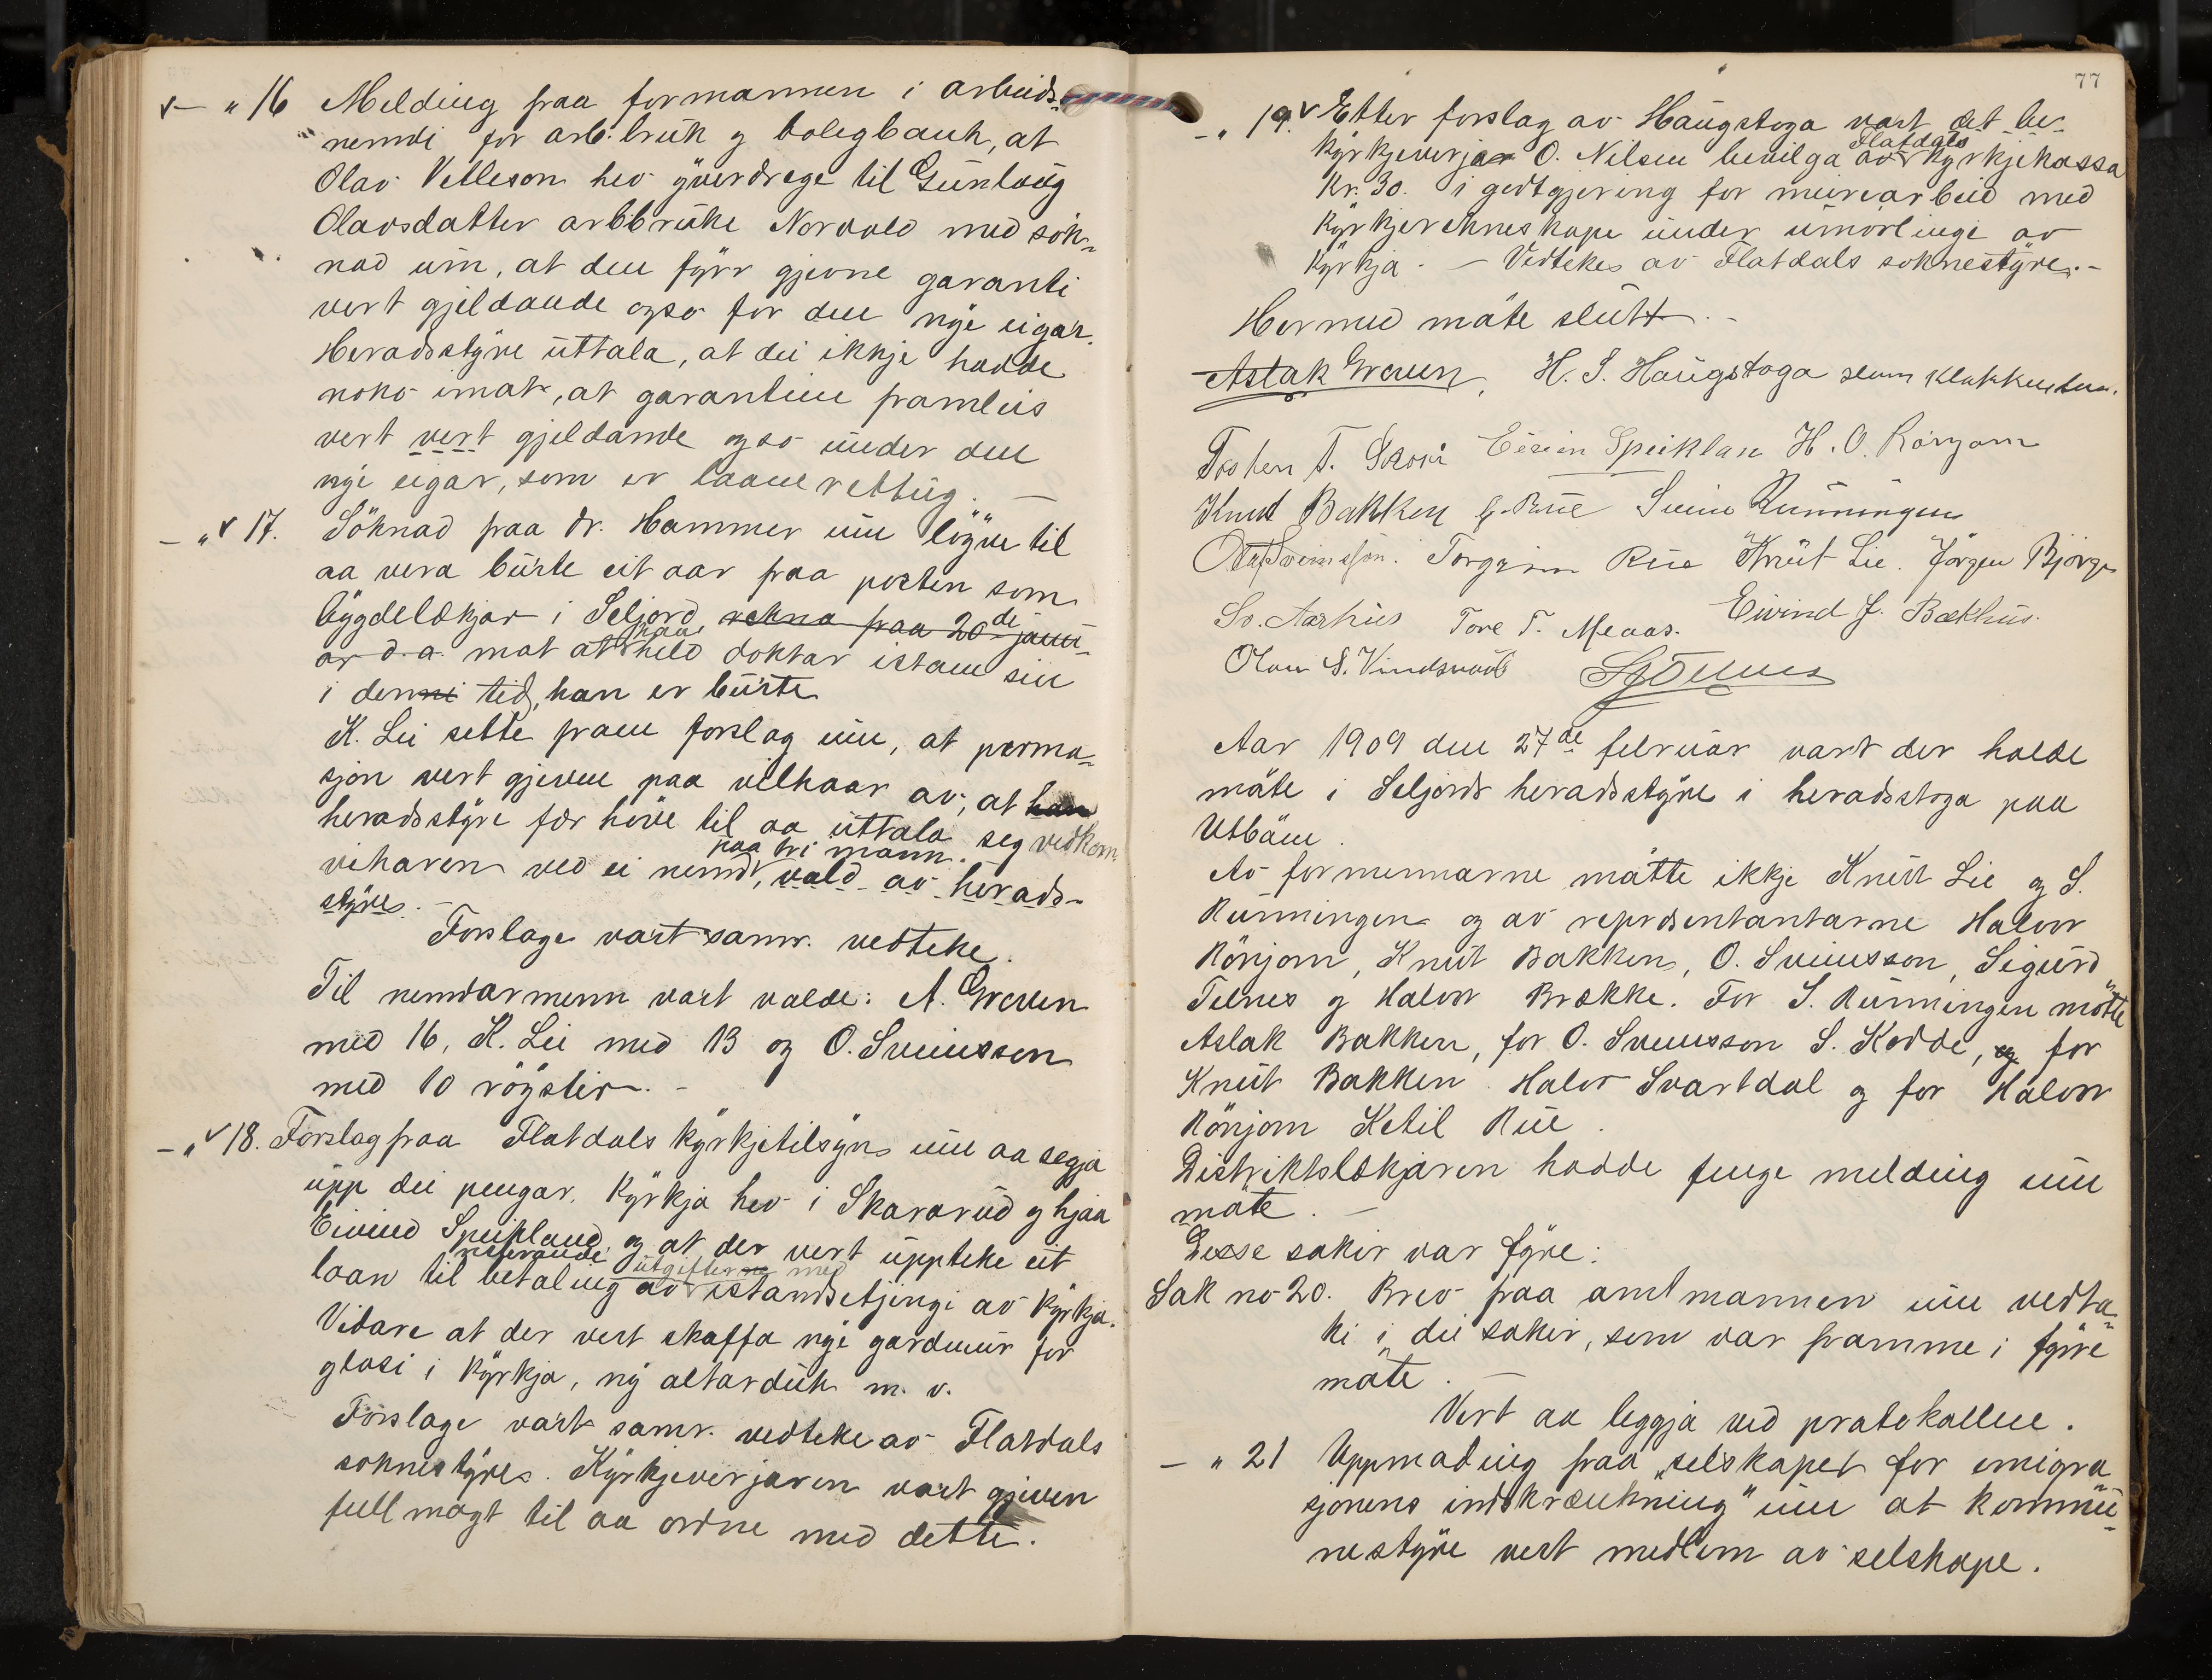 — " 16 Melding fraa formannen i arbeids-
nemdi for arb.bruk og bolegbank, at
Olav Vetleson hev yverdrege til Gunlaug
Olavsdatter arb.bruke Norvald med søk-
nad um, at den fyrr gjevne garanti
vert gjeldande ogso for den nye eigar.
Heradsstyre uttala, at dei ikkje hadde
noko imot, at garantien framleis
vert vert gjeldande ogso under den
nye eigar, som er laanerettug. —
— " 17. Söknad fraa dr. Hammer um löyve til
aa vera burte eit aar fraa posten som
bygdelækjar i Seljord, rekna fraa 20de janu-
ar d.a. mot at han held doktar istaden sin
i denni tid, han er burte
K. Lie sette fram forslag um, at perma-
sjon vert gjeven paa vilkaar av, at han
heradsstyre fær höve til aa uttala seg vedkom.
vikaren ved ei nemd paa tri mann, vald av herads-
styre. —
Forslage vart samr. vedteke.
Til nemdarmenn vart valde: A. Graven
med 16, K. Lie med 13 og O. Sveinsson
med 10 röyster. -
— " 18. Forslag fraa Flatdals kyrkjetilsyn um aa segja
upp dei pengar, kyrkja hev i Skararud og hjaa
Eivind Speikland og at der vert uppteke eit
loan til betaling resterande av utgifterne med istandsetjingi av kyrkja.
Vidare at der vert skaffa nye gardinur for
glasi i kyrkja, ny altarduk m. v.
Forslage vart samr. vedteke av Flatdals
soknestyre. Kyrkjeverjaren vart gjeven
fullmagt til aa ordne med dette.
77
— " 19. Etter forslag av Haugstoga vart det be-
kyrkjeverjar O. Nilsen bevilga av Flatdals kyrkjekassa
Kr. 30. i godtgjering for meirarbeid med
kyrkjerekneskape under umvölingi av
kyrkja. — Vedtekes av Flatdals soknestyre. -
Hermed möte slutt. -
Aslak Graven, H. S. Haugstoga
Tosten T. Skori Eivin Speiklan H. O. Rönjom
Knut Bakken G. Rue Svein Rünningen
Olaf Sveinsson. Torgrim Rue Knut Lie. Jörgen Björge
Sv. Aarhus Tore T. Meaas. Eivind J. Bækhus.
Olav S. Vindsvaal
Aar 1909 den 27de februar vart der halde
möte i Seljords heradsstyre i heradsstoga paa
Utböen.
Av formennarne mötte ikkje Knut Lie og S.
Rünningen og av representantarne Halvor
Rönjom, Knut Bakken, O. Sveinsson, Sigurd
Telnes og Halvor Brække. For S. Rünningen mötte
Aslak Bakken, for O. Sveinsson S. Kodde, og for
Knut Bakken Halvor Svartdal og for Halvor
Rönjom Ketil Rue.
Distriktslækjaren hadde fenge melding um
möte. —
Desse saker var fyre:
Sak no 20. Brev fraa amtmannen um vedta-
ki i dei saker, som var framme i fyrre
möte. —
Vert aa leggja ved protokollen.
— " 21 Uppmoding fraa "selskapet for emigra-
sjonens indskrænkning" um at kommu-
nestyre vert medlem av selskape.